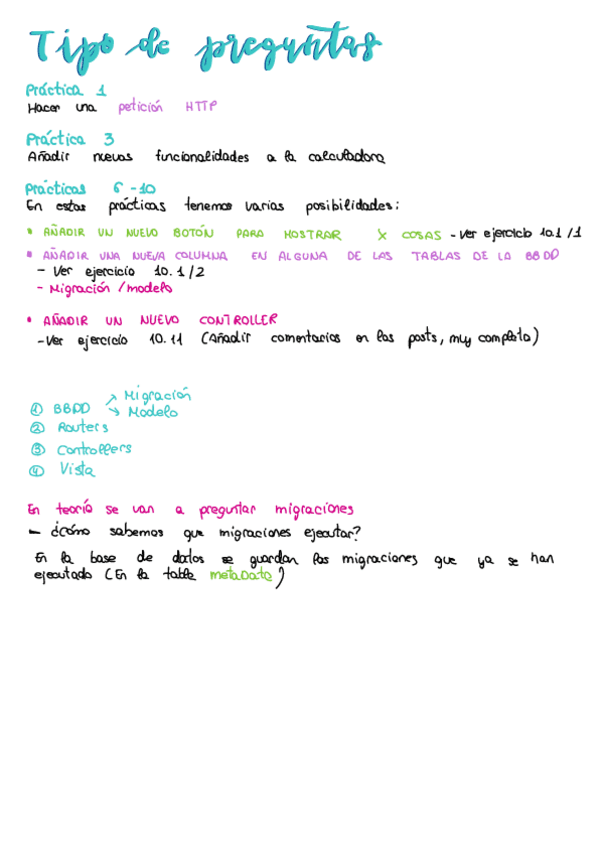 Tipo de preguntas
Práctica 1
Hacer una petición HTTP
Práctica 3
Añadir nuevas funcionalidades a la calculadora
Prácticas 6-10
En estas prácticas tenemos varias posibilidades:
• AÑADIR UN NUEVO BOTÓN PARA MOSTRAR X COSAS - Ver ejercicio 10.1/1
• AÑADIR UNA NUEVA COLUMNA EN ALGUNA DE LAS TABLAS DE LA BBDD
- Ver ejercicio 10.1/2
- Migración/modelo
• AÑADIR UN NUEVO CONTROLLER
- Ver ejercicio 10.11 (Añadir comentarios en los posts, muy completo)
① BBDD ↗ Migración
↘ Modelo
② Routers
③ Controllers
④ Vista
En teoría se van a preguntar migraciones
- ¿Cómo sabemos que migraciones ejecutar?
En la base de datos se guardan las migraciones que ya se han
ejecutado (En la table metaData)